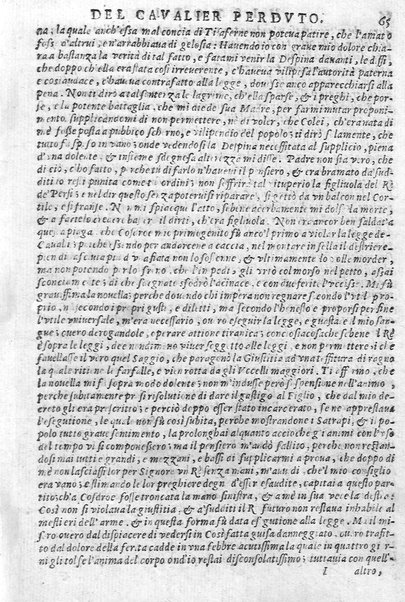 DEL CAVALIER PERDVTO. 65
na; la quale anch'essa mal concia di Tisaferne non poteua patire, che l'amato
fosse d'altrui, e n'arrabbiaua di gelosia; Hauendo io con graue mio dolore chia-
ra a bastanza la verità di tal fatto, e fatami venir la Despina dauanti, le dissi
che doppo ch'ella era stata così irreuerente, c'haueua vilipesa l'autorità paterna
e conseguente, c'haueua contrafatto alla legge, douesse anco apparecchiarsi alla
pena. Non ti dirò a tal sentenza le lagrime, ch'ella sparse, & i preghi, che por-
se, e la potente battaglia, che mi diede sua Madre, per farmi mutar proponi-
mento, supplicandomi di non permettere, nè di voler, che Colei, ch'era nata di
mè fosse posta a publico scherno, e vilipendio del popolo; ti dirò solamente, che
tutto fù sparso in vano; onde vedendosi la Despina necessitata al supplicio, piena
d'una dolente, & insieme sdegnosa alterezza mi disse. Padre non sia vero, che
di ciò, c'ho fatto, perche di farlo n'haueui il pensiero, & era bramato da' sud-
diti io resti punita come t'ordini; non soffrirò tal vituperio la figliuola del Rè
de' Persi; e nel dir questo senza poteruisi riparare, si gettò da vn balcon nel Cor-
tile, e si franse. Non mi spiacque l'atto, sebene acerbamente mi dolse la morte,
& a fartelo credere basterà il dirti, ch'era figliuola. Non era ancor ben saldata
questa piaga che Cosroe mio primogenito fù anco'l primo a violar la legge de'
Caualli; poscia ch'essendo per andarcene a caccia, nel montare in sella il destriero
pien di
ma non potendo per lo freno, che l'impedì, gli vrtò col morso nel petto, assai
sconciamente; di che sdegnato sfodrò l'acinace, e con due ferite l'vccise. Mi fù
grauissima la nouella; perche douendo chi impera non regnare secondo l'vtil pro-
prio, nè secondo i propri gusti, e diletti, ma secondo l'honesto e proporsi per fine
l'vtile vniuersale, m'era necessario, ouero eseguir la legge, e giusta, e'l mio san-
gue; ouero derogandole, operare ation tirannica; conciosiacosache se bene il Rè
è sopra le leggi, dee nondimeno viuer soggetto alle leggi, e non permettere; che
fauellasse il vero quel Saggio, che paragonò la Giustitia ad vna testura di ragno
la qual ritiene le farfalle, e vien rotta dagli Vccelli maggiori. Ti affermo, che
la nouella mi fù sopra modo dolente; non m'indusse però sospensione nell'animo,
perche subitamente presi risolutione di dare il gastigo al Figlio, che dal mio de-
creto gli era prescritto; e perciò doppo esser stato incarcerato, se ne apprestaua
l'esegutione, la qual non fù così subita, perche mostrandone i Satrapi, & il po-
polo tutto graue sentimento, la prolongai alquanto acciò che gli animi con l'vso
del tempo vi si componessero; ma il pensiero m'andò fallito, perche non restan-
dosi mai tutte i grandi, e mezzani, e bassi di supplicarmi a proua, che doppo di
me non lasciassi lor per Signore vn Rè senza mani, m'auuidi, che'l mio consiglio
era vano; e stimando le lor preghiere degne d'esser esaudite, capitai a questo par-
tito; ch'a Cosroe fosse troncata la mano sinistra, & a me in sua vece la destra:
Così non si violaua la giustitia, & a' sudditi il Rè futuro non restaua inhabile al
mestieri dell'arme, & in questa forma fù data esegutione alla legge. Ma il mi-
sero ouero dal dispiacere di vedersi in Cosroe fatta guisa danneggiato, ouero trafit-
to dal dolore della ferita cadde in vna febbre acutissima la quale in quattro gior-
ni gli tolse l'anima del corpo ond'io restai disconsolatissimo; tuttauia con quell'
I altro,